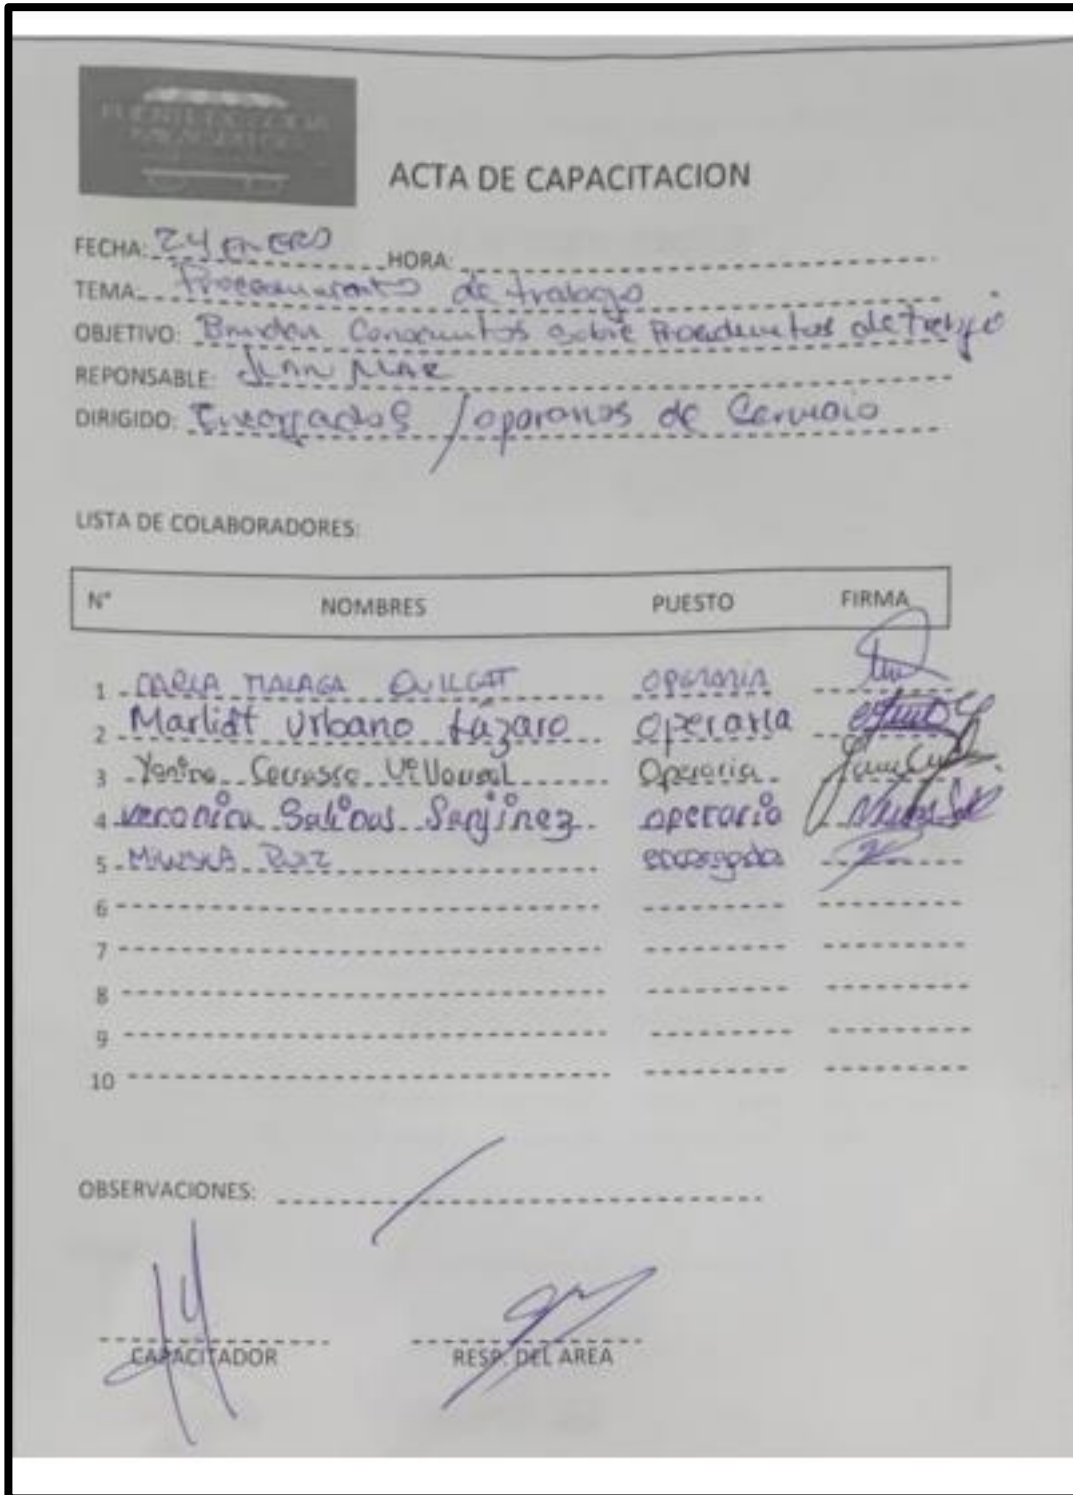 ACTA DE CAPACITACION
FECHA: 24 ENERO HORA:
TEMA: Procedimiento de trabajo
OBJETIVO: sobre Procedimientos de trabajo
REPONSABLE: JEAN MAR
DIRIGIDO: Encargados / operarios de Servicio
LISTA DE COLABORADORES:
N° NOMBRES PUESTO FIRMA
1 MALAGA QUILCAT operaria
2 Marlidt Urbano Lázaro operaria
3 Operaria
4 veronica Salinas Sanjinez operario
5 RUIZ encargada
6
7
8
9
10
OBSERVACIONES:
CAPACITADOR RESP. DEL AREA